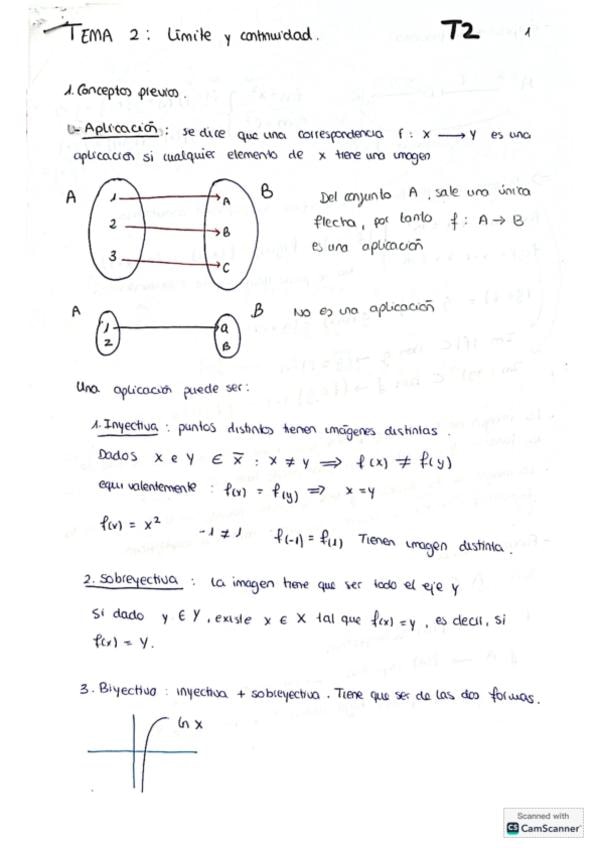 TEMA 2: Límite y continuidad. T2 1
1. Conceptos previos.
- Aplicación: se dice que una correspondencia f: X → Y es una
aplicación si cualquier elemento de x tiene una imagen
A B
1 A
2 B
3 C
Del conjunto A, sale una única
flecha, por tanto f: A → B
es una aplicación
A B
1 a
2 B
No es una aplicación
Una aplicación puede ser:
1. Inyectiva: puntos distintos tienen imágenes distintas.
Dados x e y ∈ X̄ : x ≠ y ⟹ f(x) ≠ f(y)
equivalentemente: f(x) = f(y) ⟹ x = y
f(x) = x² -1 ≠ 1 f(-1) = f(1) Tienen imagen distinta.
2. Sobreyectiva: La imagen tiene que ser todo el eje y
Si dado y ∈ Y, existe x ∈ X tal que f(x) = y, es decir, si
f(x) = Y.
3. Biyectiva: inyectiva + sobreyectiva. Tiene que ser de las dos formas.
ln x
Scanned with
CS CamScanner